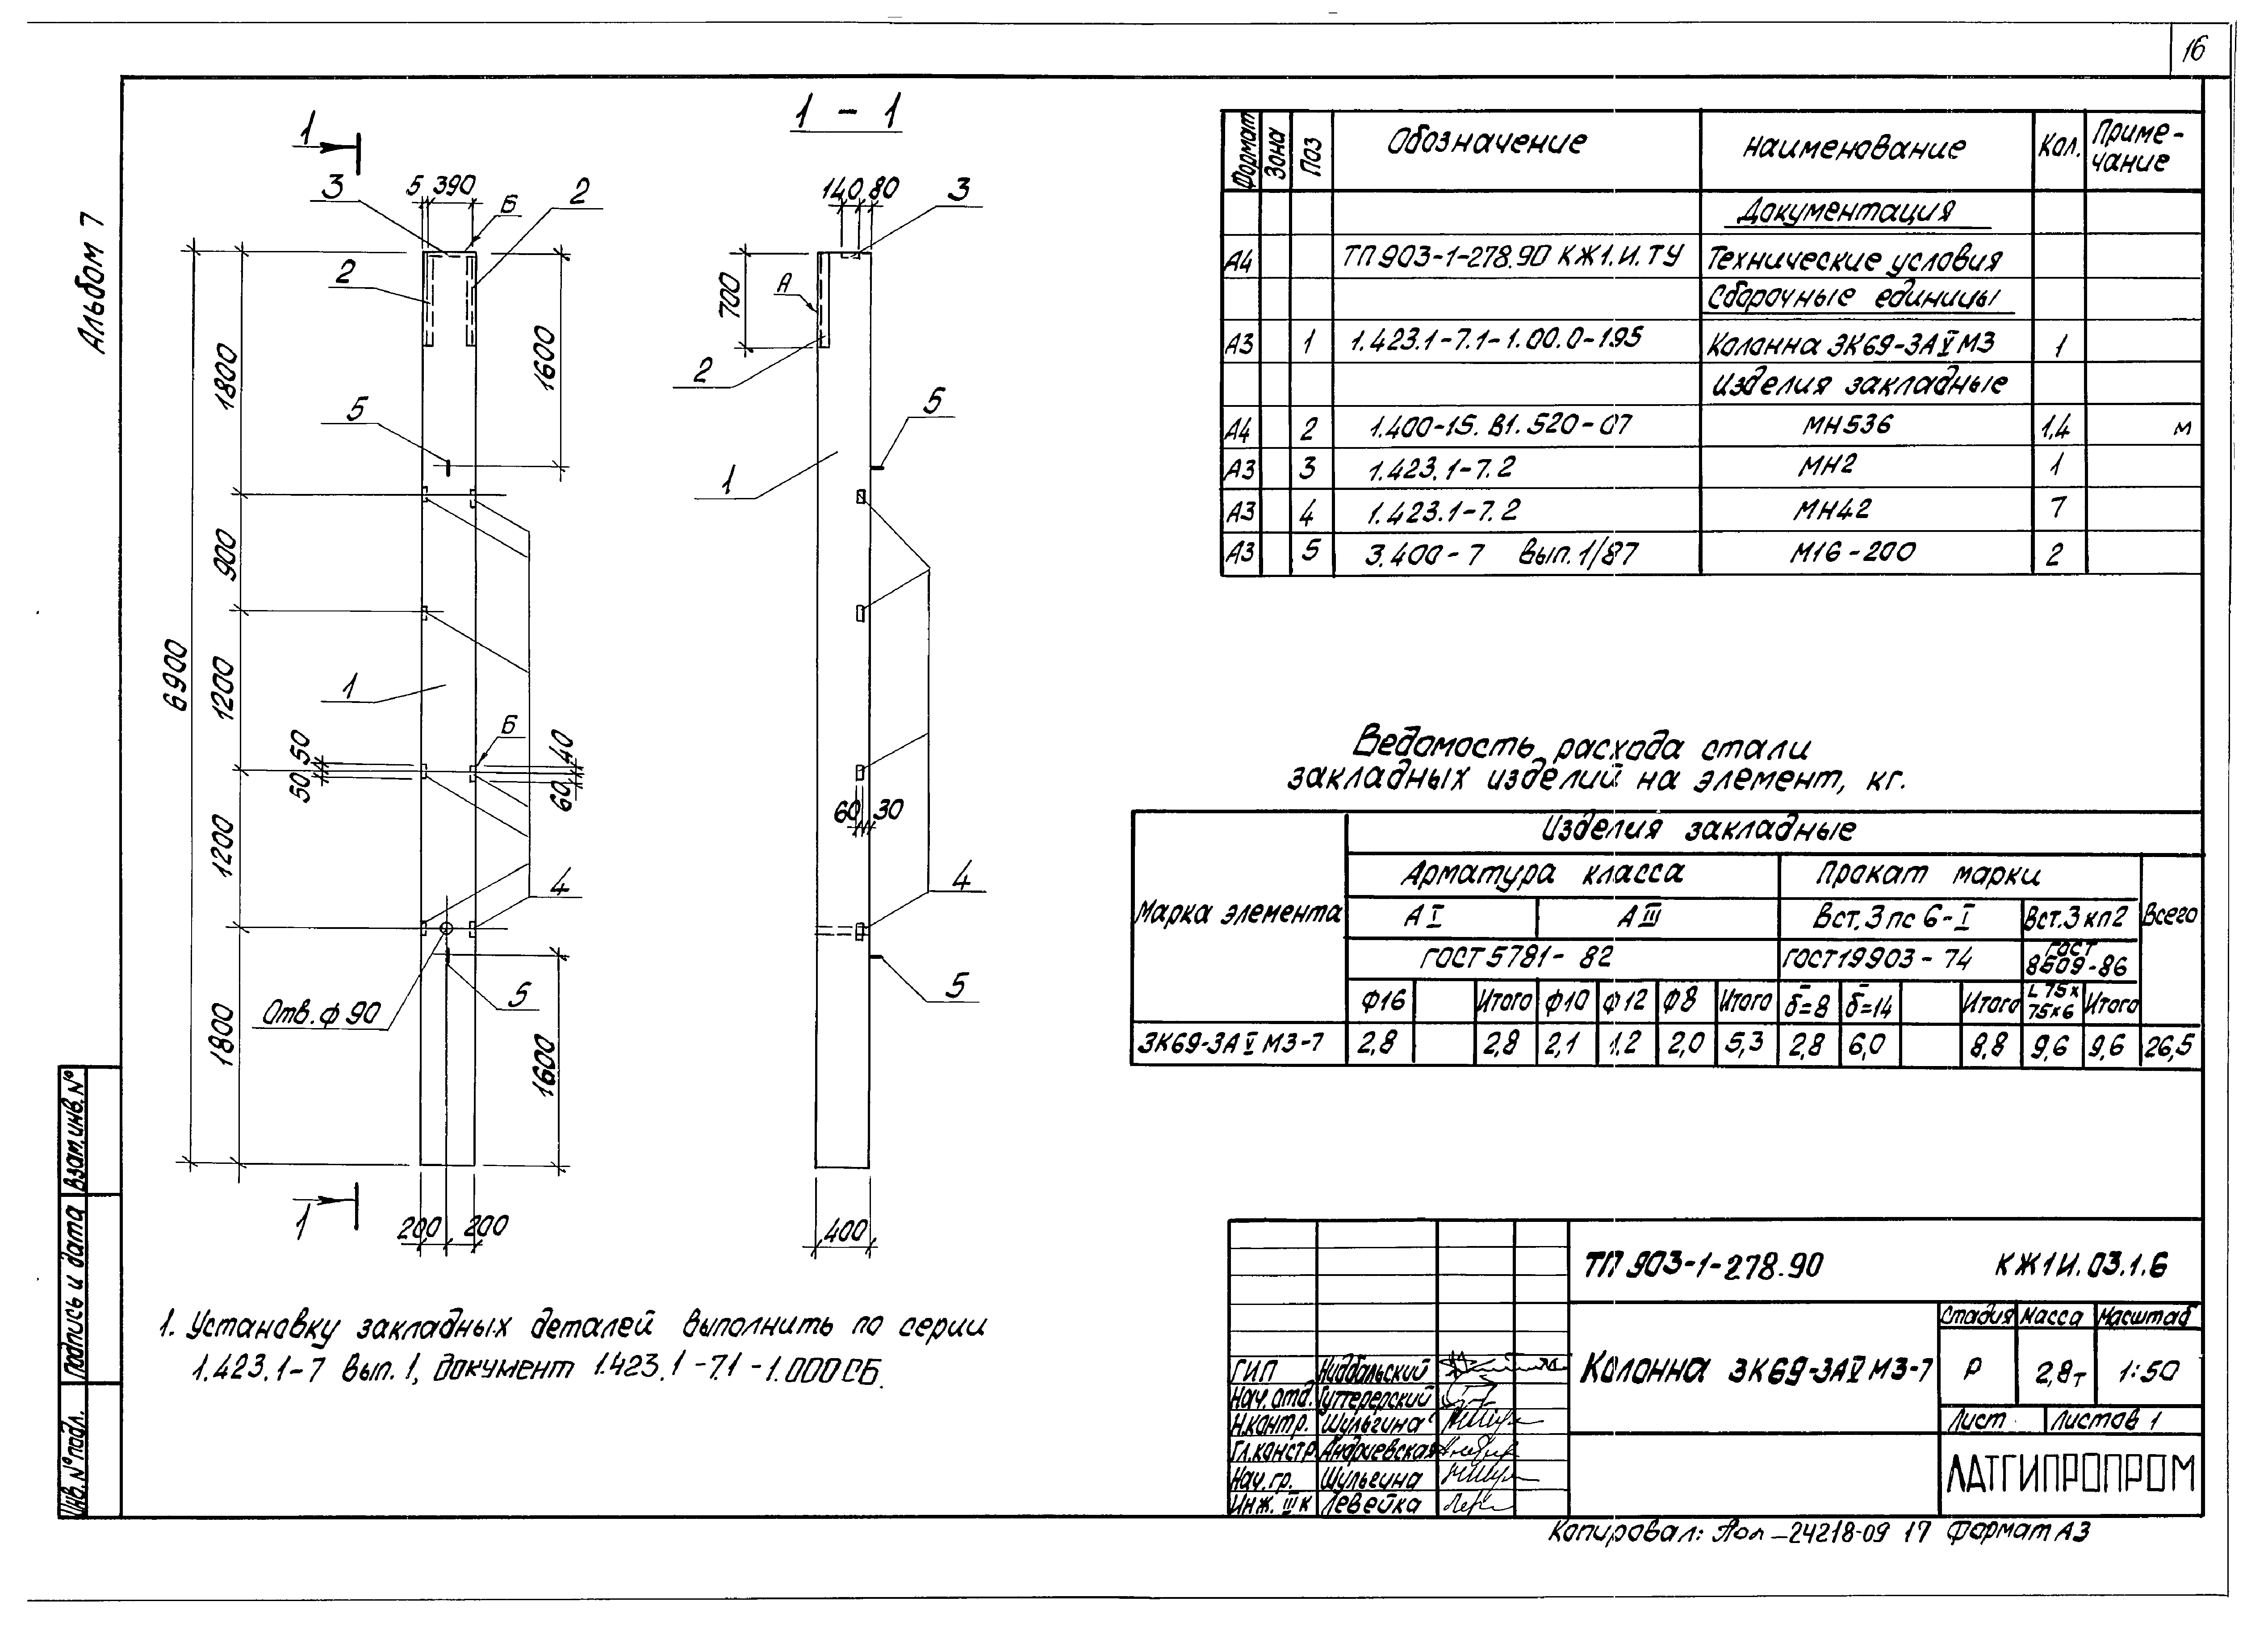 16
Альбом 7
1
1 - 1
3
5 390
Б
2
140 80
3
2
А
700
1800
1600
5
2
5
1
900
6900
1200
1
Б
50
50
40
60
60 30
1200
4
4
Отв. ф 90
5
5
1800
1600
1
200 200
400
1. Установку закладных деталей выполнить по серии
1.423.1-7 вып. 1, документ 1.423.1-7.1-1.000СБ.
Формат Зона Поз Обозначение Наименование Кол. Приме-
чание
Документация
А4 ТП 903-1-278.90 КЖ1.И.ТУ Технические условия
Сборочные единицы
А3 1 1.423.1-7.1-1.00.0-195 Колонна 3К69-3АV М3 1
Изделия закладные
А4 2 1.400-15.В1.520-07 МН536 1,4 м
А3 3 1.423.1-7.2 МН2 1
А3 4 1.423.1-7.2 МН42 7
А3 5 3.400-7 Вып.1/87 М16-200 2
Ведомость расхода стали
закладных изделий на элемент, кг.
Марка элемента Изделия закладные
Арматура класса Прокат марки Всего
А I А III Вст.3 пс 6-I Вст.3 кп2
ГОСТ 5781-82 ГОСТ 19903-74 ГОСТ
8509-86
Ф16 Итого Ф10 Ф12 Ф8 Итого δ=8 δ=14 Итого L 75х
75х6 Итого
3К69-3АV М3-7 2,8 2,8 2,1 1,2 2,0 5,3 2,8 6,0 8,8 9,6 9,6 26,5
ТП 903-1-278.90 КЖ1И.03.1.6
Колонна 3К69-3АV М3-7
Стадия Масса Масштаб
Р 2,8т 1:50
Лист Листов 1
ЛАТГИПРОПРОМ
ГИП
Нач. отд. Гуттерерский
Н.контр. Шульгина
Гл.констр Андриевская
Нач. гр. Шульгина
Инж. III к Левейка
Инв. № подл. Подпись и дата Взам.инв. №
Копировал: 24218-09 17 Формат А3